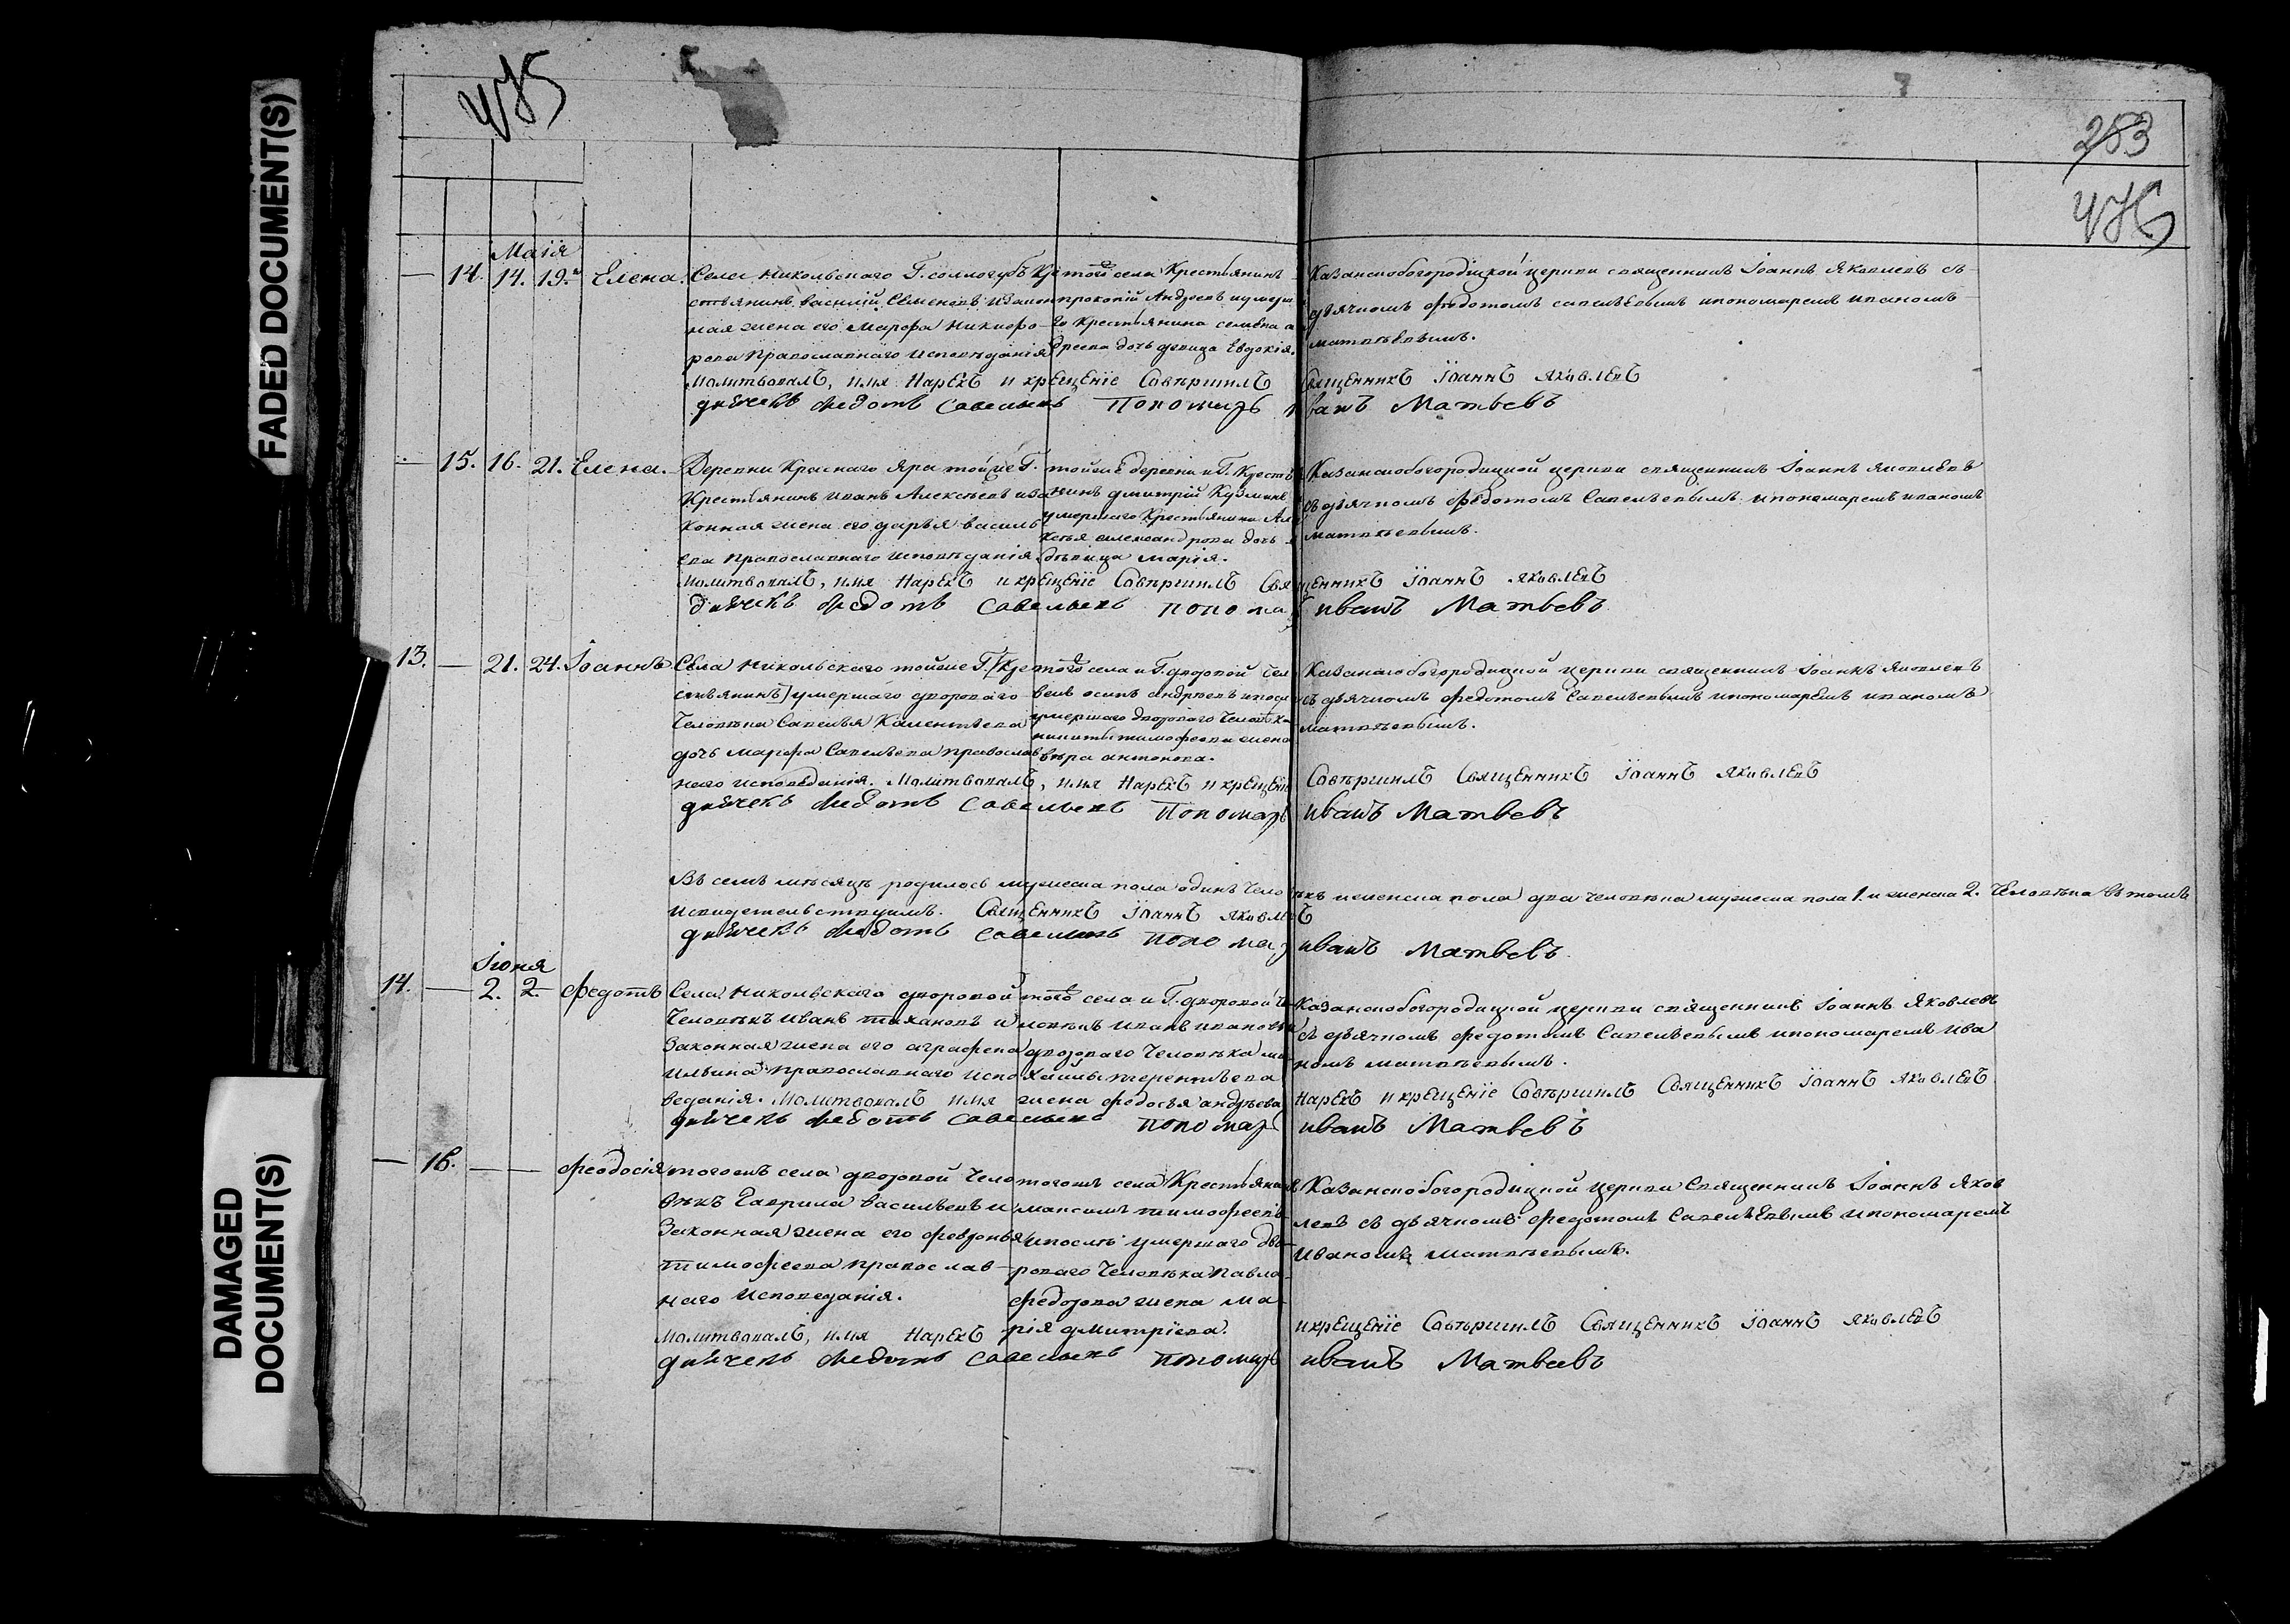 FADED DOCUMENT(S)
DAMAGED DOCUMENT(S)
475
283
476
Маія
— 14. 14. 19. Елена.
Села Никольскаго Г. Соллогубъ Кре
стьянинъ василій Семеновъ изакон
ная жена его Марфа Никифо
рова Православнаго Исповѣданія
той села Крестьянинъ
прокопій Андреевъ иумерша
го Крестьянина
дочь девица Евдокія.
Казанскобогородицкой церкви священникъ Іоаннъ Яковлевъ съ
дьячкомъ федотомъ савельевымъ ипономаремъ иваномъ
матвѣевымъ.
Молитвовалъ, имя Нарекъ и крещеніе Совершилъ Священникъ Іоаннъ Яковлевъ
дьячекъ Федотъ Савельевъ Пономарь иванъ Матвѣевъ
— 15. 16. 21. Елена.
Деревни Краснаго Яра тойже Г.
Крестьянинъ иванъ Алексѣевъ иза
конная жена его дарья василь
ева православнаго исповѣданія
тойже деревни и Г. Крестья
нинъ дмитрій Кузминъ
умершаго Крестьянина Але
ксѣя александрова дочь
дѣвица марія.
Казанскобогородицкой церкви священникъ Іоаннъ яковлевъ
съ дьячкомъ федотомъ Савельевымъ ипономаремъ иваномъ
матвѣевымъ.
Молитвовалъ, имя Нарекъ и крещеніе Совершилъ Священникъ Іоаннъ яковлевъ
дьячекъ Федотъ Савельевъ пономарь иванъ Матвѣевъ
13. — 21. 24. Іоаннъ
Села Никольскаго тойже Г. [Кре
стьянинъ] умершаго двороваго
Человѣка Савелья Калентьева
дочь марфа Савельева православ
наго исповеданія.
того села и Г. дворовой чело
векъ осипъ андреевъ ипосле
умершаго двороваго Человѣка
никиты тимофеева жена
вѣра антонова.
Казанскобогородицкой церкви священникъ Іоаннъ яковлевъ
съ дьячкомъ федотомъ Савельевымъ ипономаремъ иваномъ
матвѣевымъ.
Молитвовалъ, имя Нарекъ и крещеніе Совершилъ Священникъ Іоаннъ яковлевъ
дьячекъ Федотъ Савельевъ Пономарь иванъ Матвѣевъ
Въ семъ мѣсяцѣ родилось мужеска пола одинъ Человѣкъ иженска пола два человѣка мужеска пола 1. и женска 2. Человѣка въ томъ
исвидетельствуемъ. Священникъ Іоаннъ яковлевъ
дьячекъ Федотъ Савельевъ пономарь иванъ Матвѣевъ.
Іюня
14. — 2. 2. Федотъ
Села Никольскаго дворовой
Человѣкъ иванъ и
Законная жена его аграфена
Ильина православнаго испо
веданія. Молитвовалъ имя
того села и Г. дворовой Че
ловѣкъ иванъ ивановъ и
двороваго Человѣка ми
хайлы терентьева
жена федосья андрѣева
Казанскобогородицкой церкви священникъ Іоаннъ Яковлевъ
съ дьячкомъ федотомъ Савельевымъ ипономаремъ ива
номъ матвѣевымъ.
Нарекъ и крещеніе Совершилъ Священникъ Іоаннъ яковлевъ
дьячекъ Федотъ Савельевъ пономарь иванъ Матвѣевъ
— 16. — — Феодосія
тогожъ села дворовой Чело
вѣкъ Гаврила васильевъ и
Законная жена его февронья
тимофеева православ
наго Исповеданія.
тогожъ села Крестьянинъ
максимъ тимофеевъ
ипослѣ умершаго дво
роваго Человѣка Павла
федорова жена Ма
рія дмитріева.
Казанскобогородицкой церкви Священникъ Іоаннъ Яков
левъ съ дьячкомъ федотомъ Савельевымъ ипономаремъ
Иваномъ Матвѣевымъ.
Молитвовалъ, имя Нарекъ икрещеніе Совершилъ Священникъ Іоаннъ яковлевъ
дьячекъ Федотъ Савельевъ пономарь иванъ Матвѣевъ